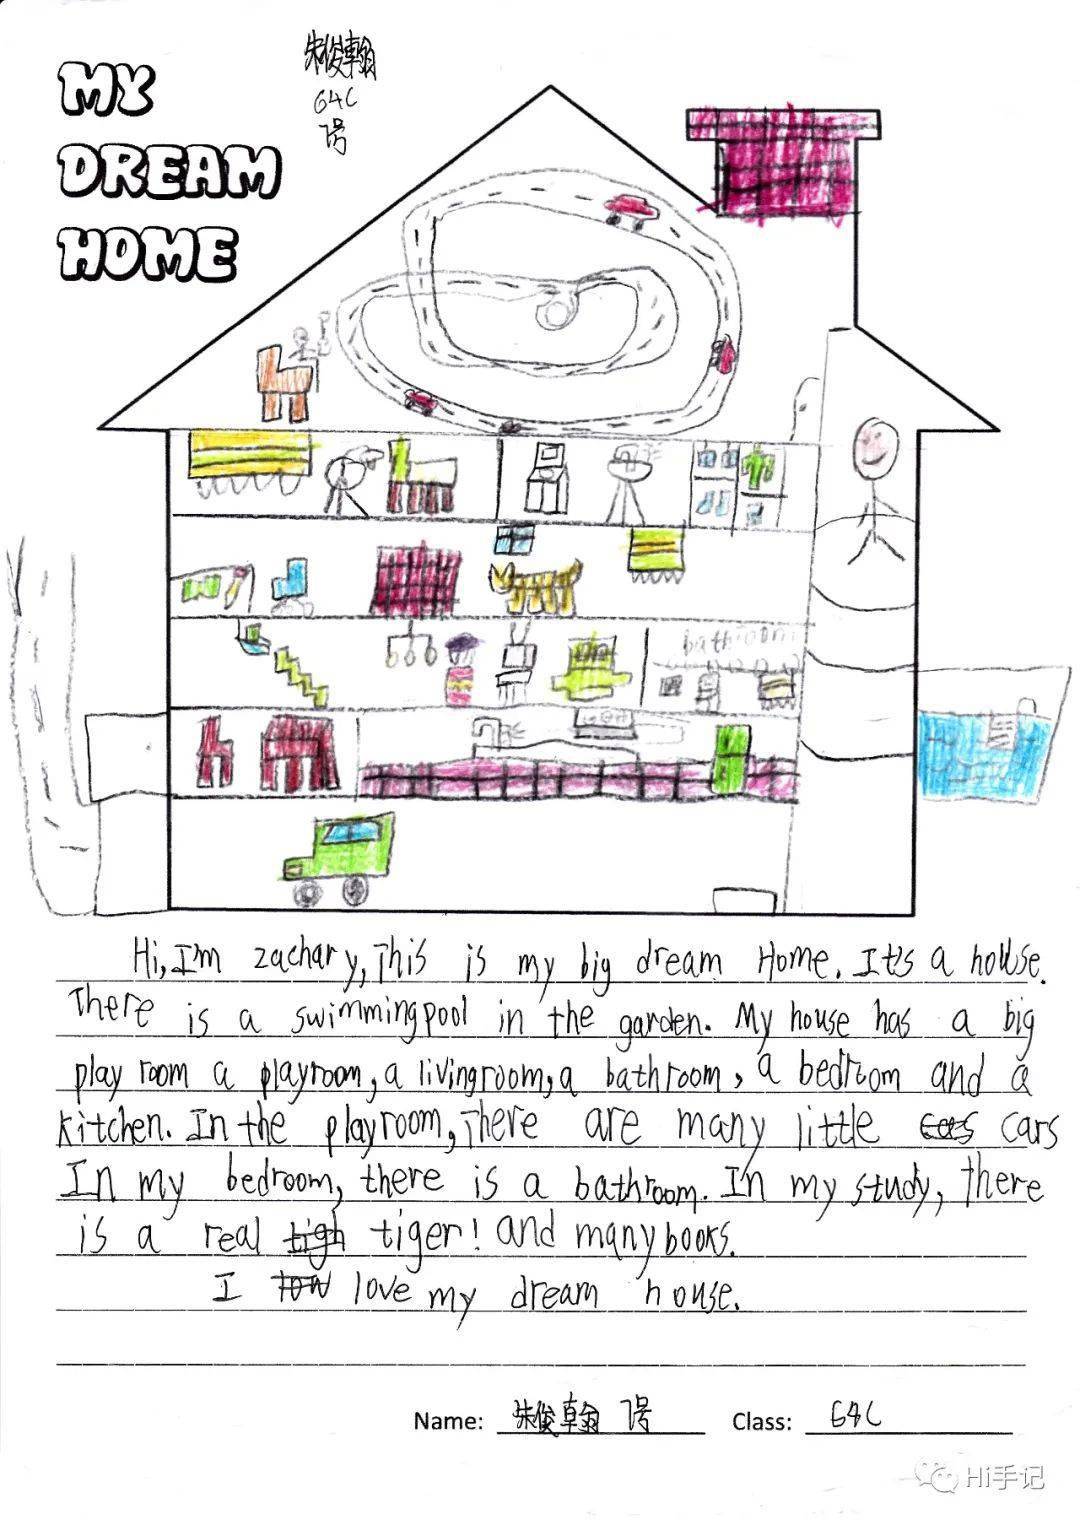 MY
DREAM
HOME
朱俊翰
G4C
7号
bathroom
Hi, I'm zachary, This is my big dream Home. It's a house.
There is a swimmingpool in the garden. My house has a big
play room a playroom, a livingroom, a bathroom, a bedroom and a
kitchen. In the playroom, There are many little cars
In my bedroom, there is a bathroom. In my study, there
is a real tigh tiger! and many books.
I love my dream house.
Name: 朱俊翰 7号 Class: G4C
Hi手记